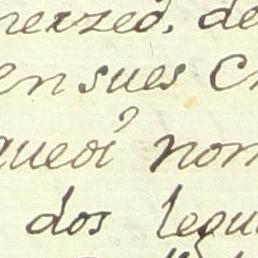 merzed, de
ensues C
quedi nom
dos legu